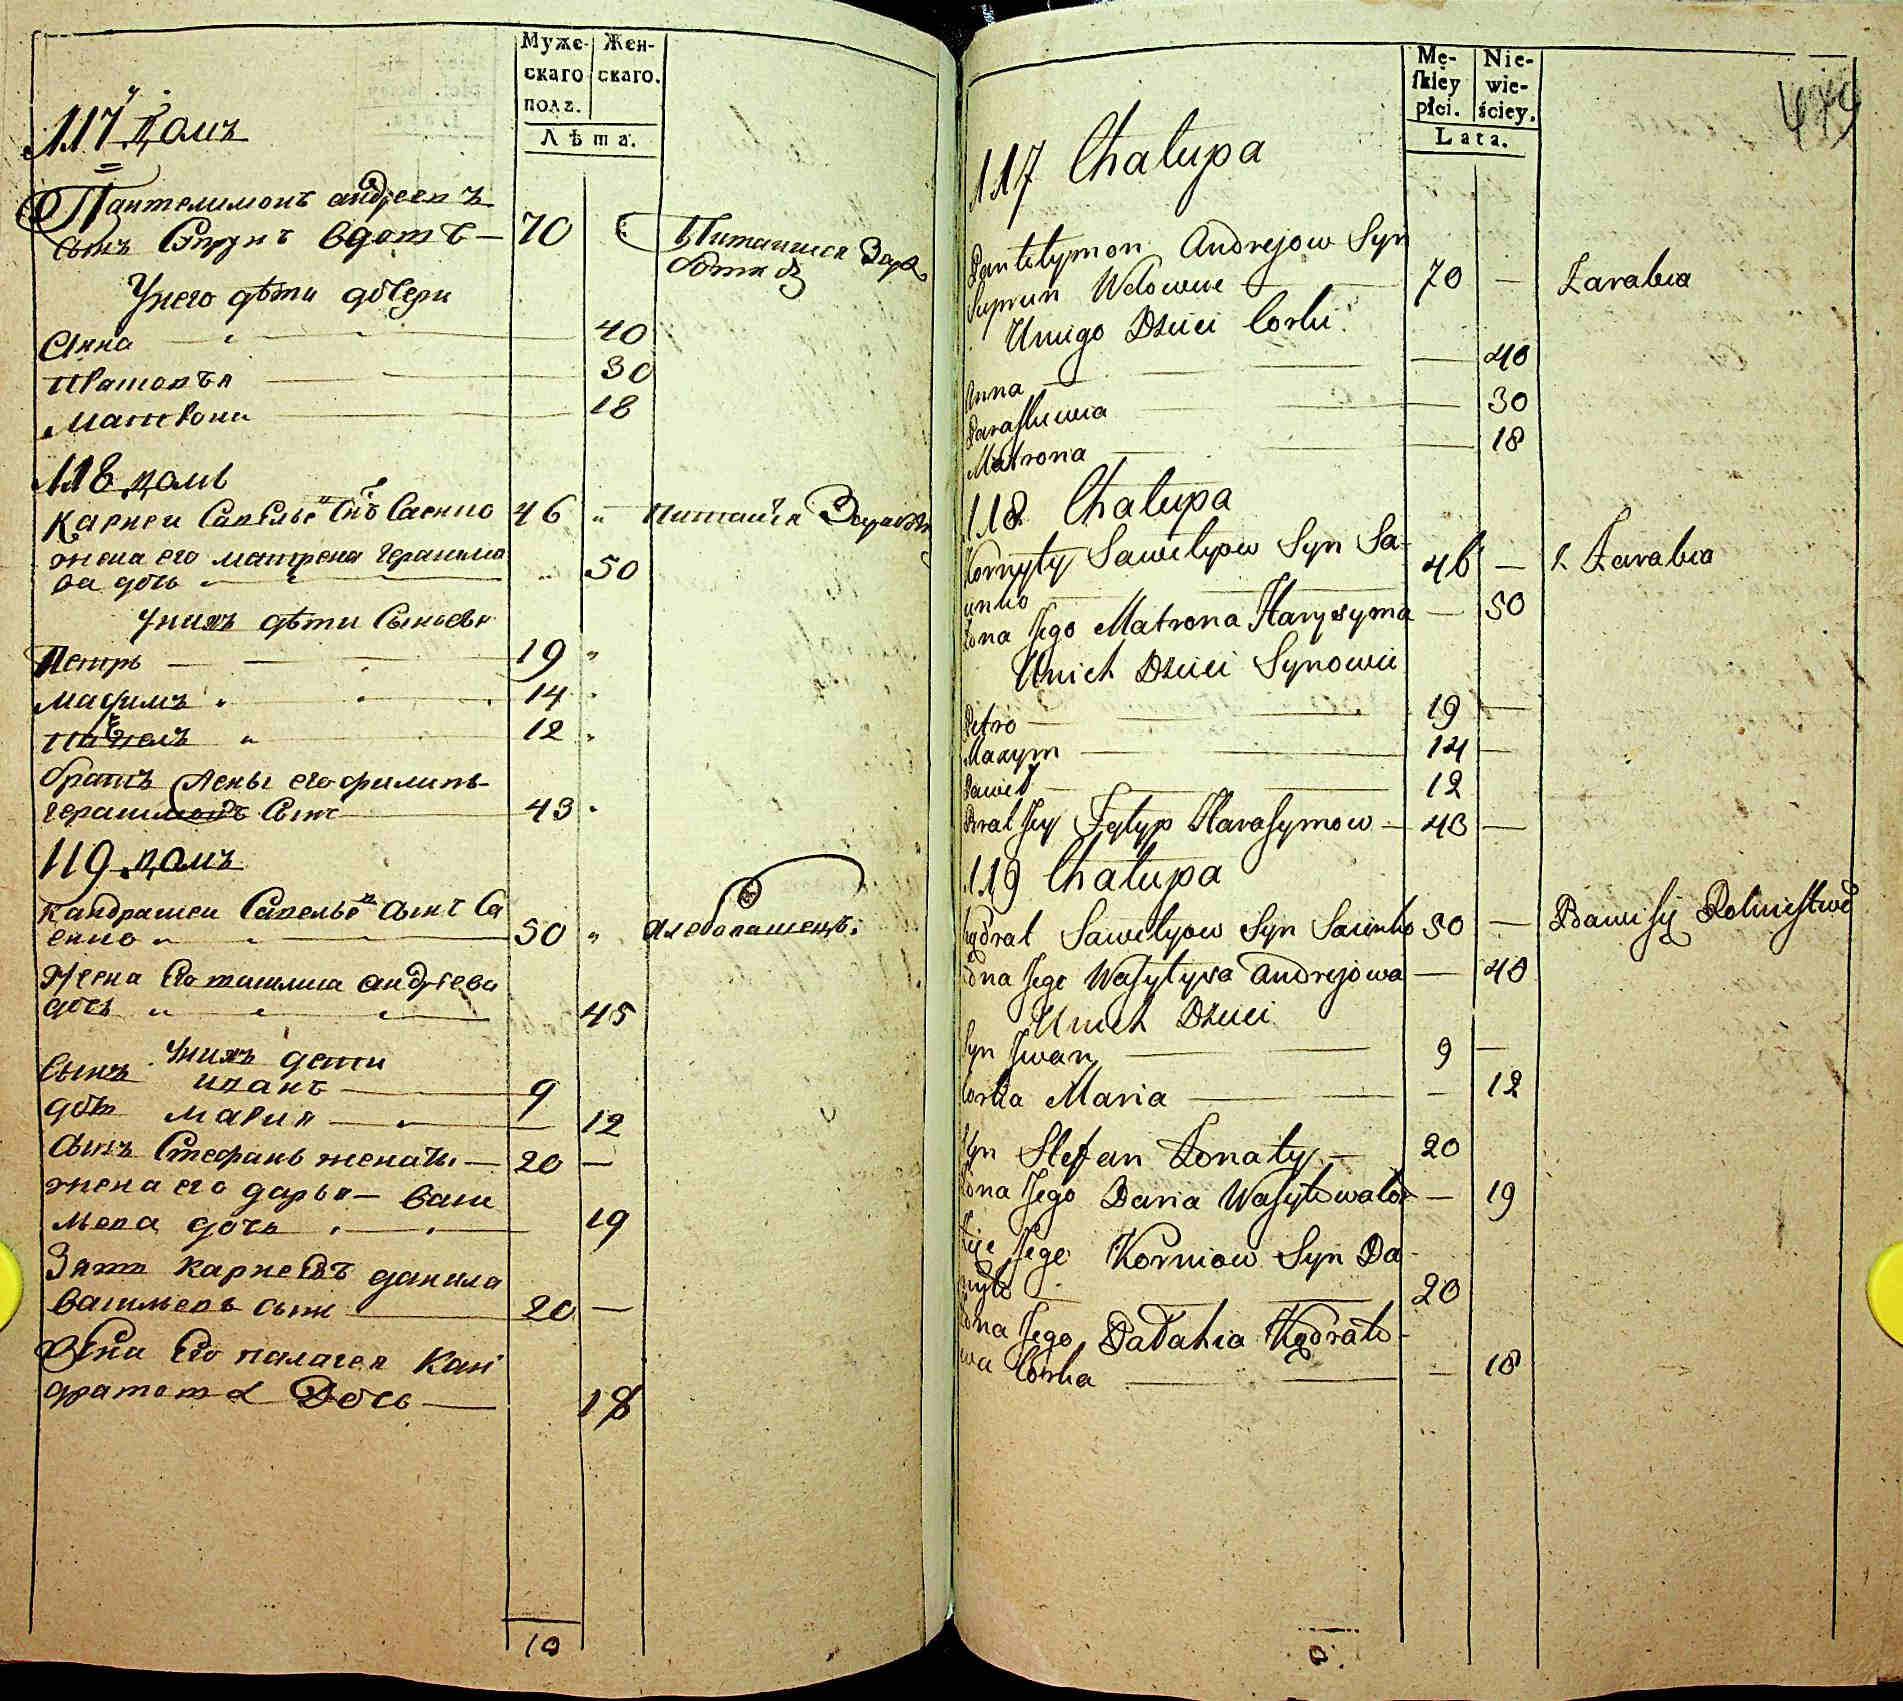 Муже-
скаго
пола.
Жен-
скаго.
Лѣта.
117 Домъ
Пантелимонъ андреевъ
сынъ Супрунъ вдовъ — 70
Питаимся Зара
боткой
Унего дѣти дочери
Анна 40
30
18
118 домъ
Карней Савельевъ Снъ Саенко 46
жена его матрена герасимо
ва дочь 50
Унихъ дѣти Сыновья
Петръ 19
Максимъ 14
12
братъ жены его филипъ
герасимовъ Сынъ 43
119 домъ
Кандратей Савельевъ сынъ Са
енко 50
хлебопашецъ
жена Его андреева
дочь 45
Унихъ дети
Сынъ иванъ 9
дочь мария 12
Сынъ Стефанъ женаты — 20 —
жена его дарья — васи
льева дочь 19
Зять Карнеевъ данила
васильевъ сынъ 20 —
жена Его палагея Кан
дратова Дочь — 18
10
Mę-
skiey
płci.
Nie-
wie-
ściey.
Lata.
479
117 Chalupa
Pantelymon Andrejow Syn
Suprun Wdowiec — 70 — Zarabia
Uniego Dzieci Corki
Anna — 40
Paraskiewia — 30
Matrona — 18
118 Chalupa
Kornyly Sawelyow Syn Sa-
ienko 46 — Zarabia
żona Jego Matrona Harysyma — 50
Unich Dzieci Synowie
Petro — 19 —
Maxym — 14 —
12
Brat Jey Fylyp Harasymow — 43 —
119 Chalupa
Kądrat Sawelyow Syn Saienko 50 — Bawi się Rolnictwem
żona Jego Wasylysa Andrejowa — 40
Unich Dzieci
Syn Jwan — 9 —
Corka Maria — 12
Syn Stefan Żonaty — 20
żona Jego Daria — 19
Jego Korniow Syn Da-
nyło — 20
żona Jego Palahia Kądrato-
wa Corka — 18